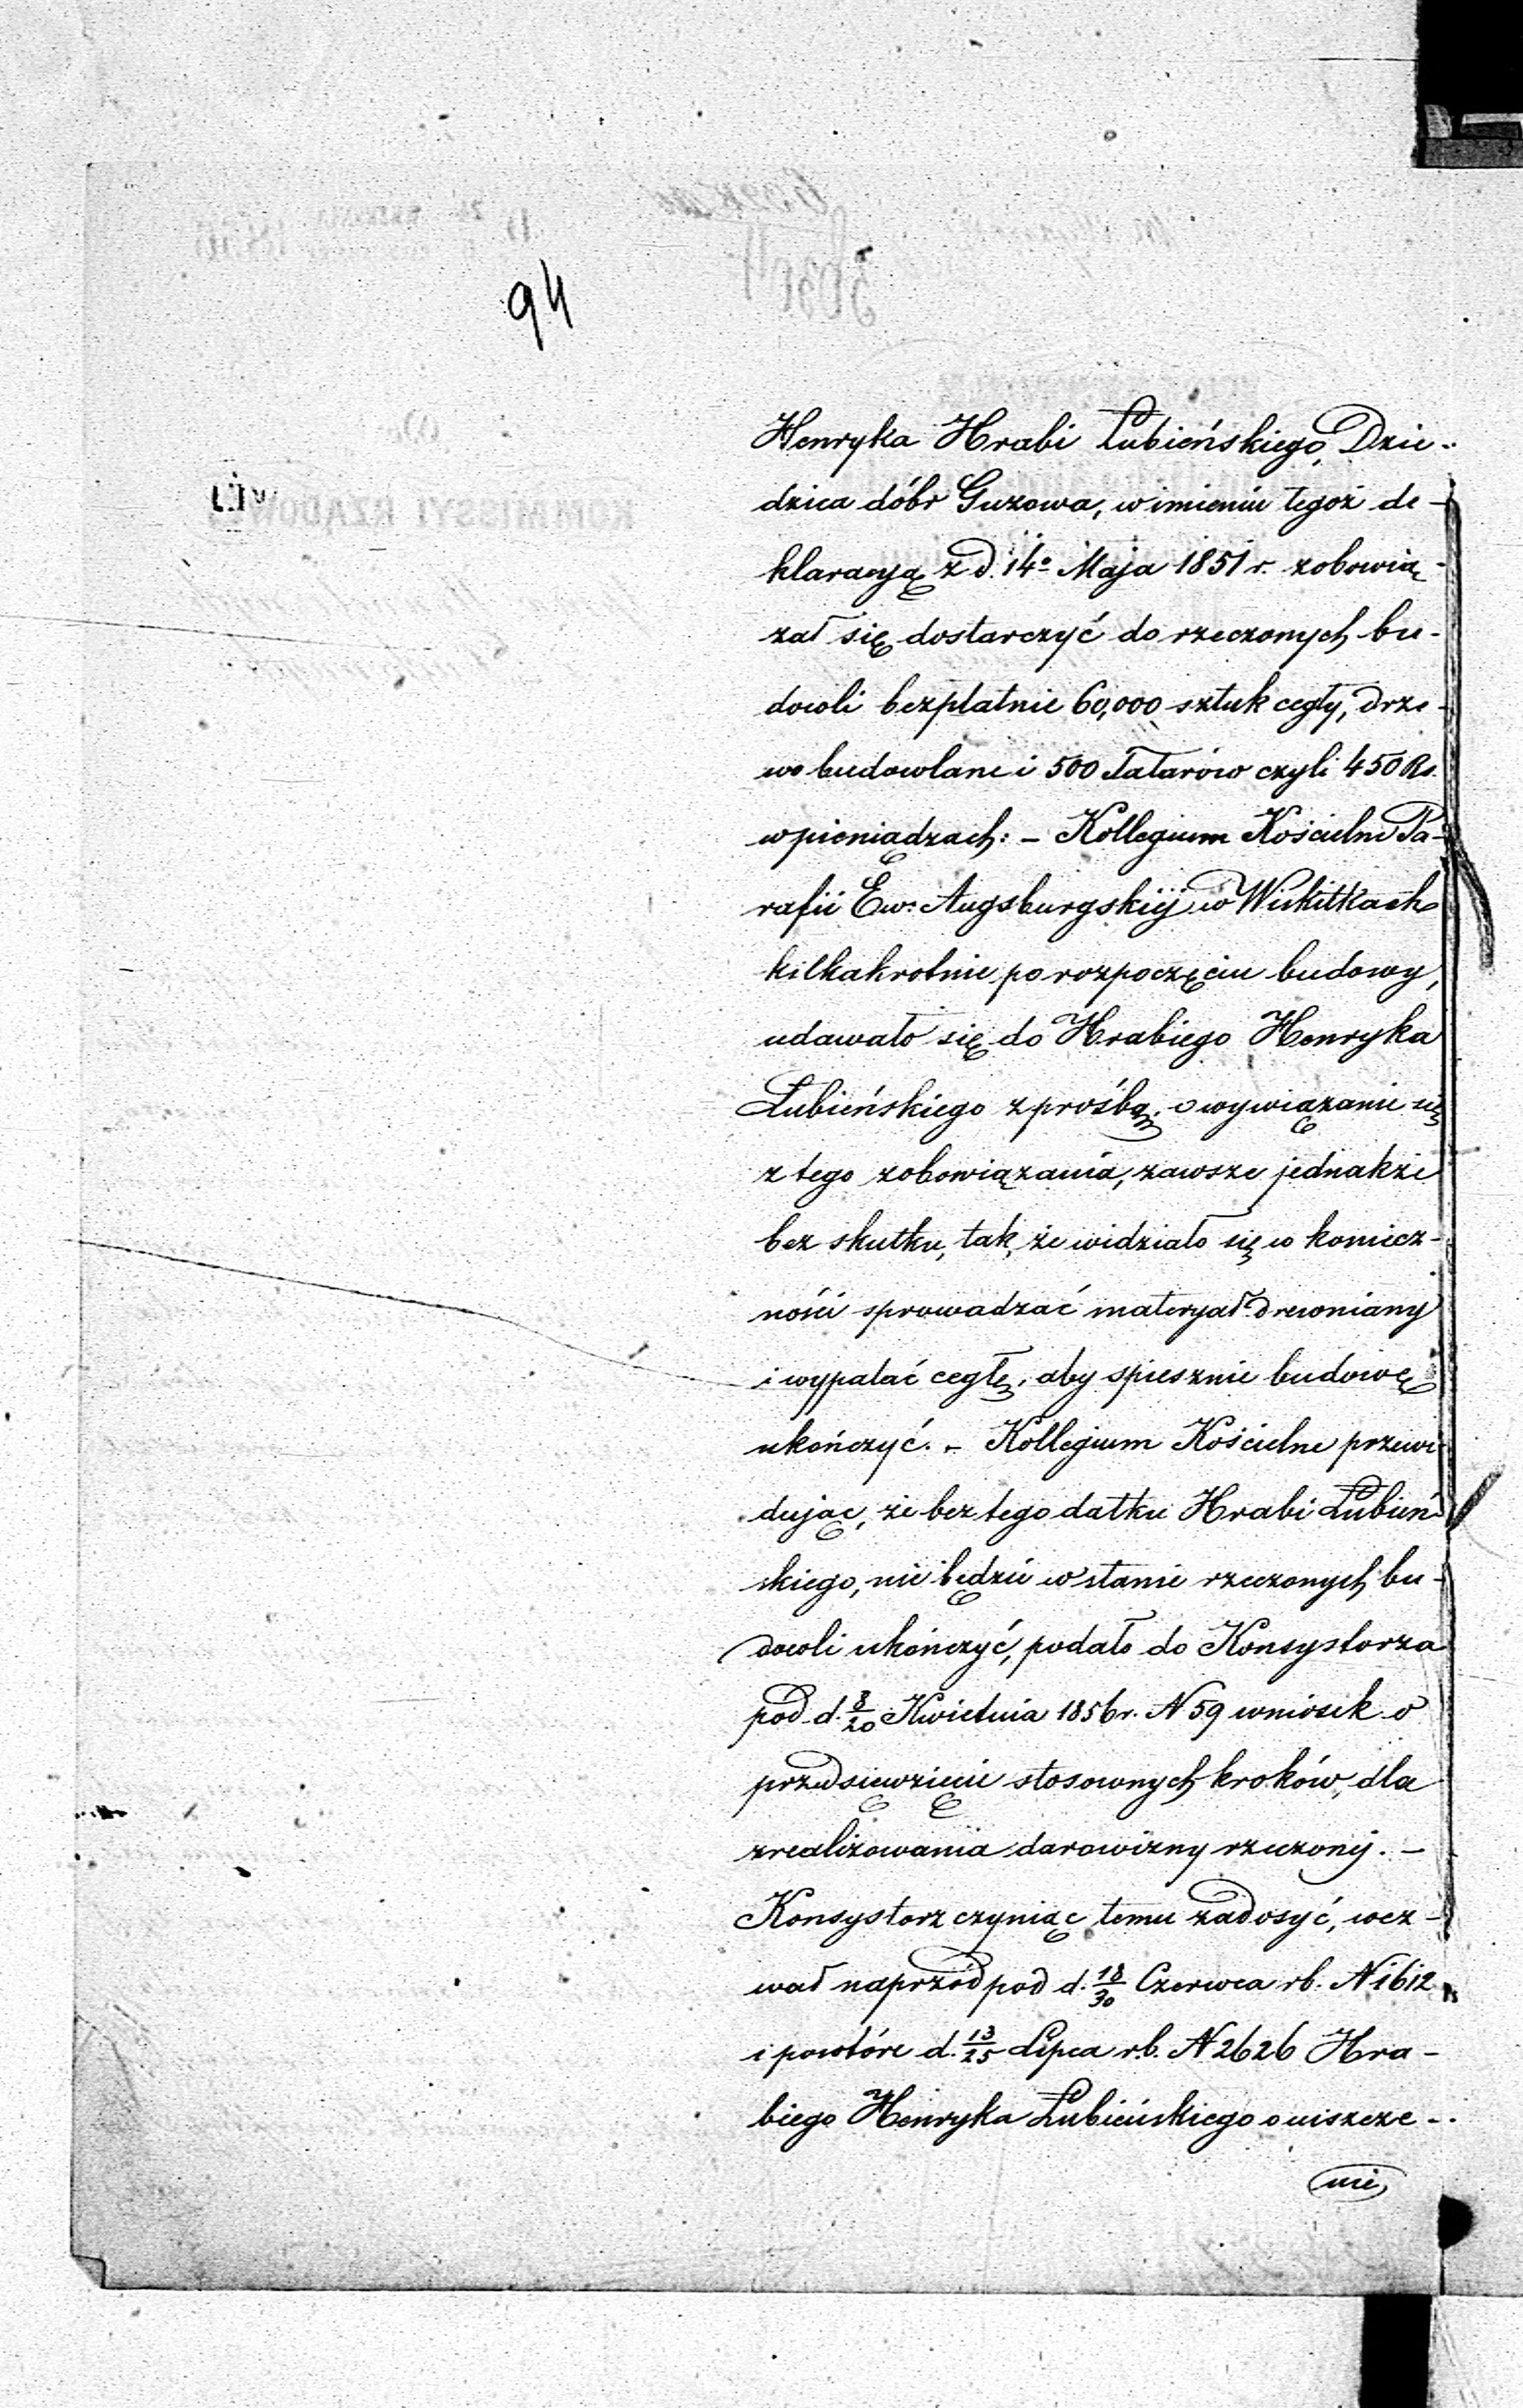 94
Henryka Hrabi Łubieńskiego, Dzie-
dzica dóbr Guzowa, w imieniu tegoż de-
klaracyą z d. 14º Maja 1851 r. zobowią-
zał się dostarczyć do rzeczonych bu-
dowli bezpłatnie 60,000 sztuk cegły, drze-
wo budowlane i 500 Talarów czyli 450 Rs.
w pieniądzach: - Kollegium Kościelne Pa-
rafii Ew: Augsburgskiéj w Wiskitkach
kilkakrotnie po rozpoczęciu budowy,
udawało się do Hrabiego Henryka
Łubieńskiego z prośbą, o wywiązanie się
z tego zobowiązania, zawsze jednakże
bez skutku, tak, że widziało się w koniecz-
ności sprowadzać materyał drewniany
i wypalać cegłę, aby spiesznie budowę
ukończyć. - Kollegium Kościelne przewi-
dując, że bez tego datku Hrabi Łubień-
skiego, nie będzie w stanie rzeczonych bu-
dowli ukończyć, podało do Konsystorza
pod d. 8/20 Kwietnia 1856 r. N 59 wniosek o
przedsięwzięcie stosownych kroków, dla
zrealizowania darowizny rzeczonej. -
Konsystorz czyniąc temu zadosyć, wez-
wał naprzód pod d. 18/30 Czerwca rb. N 1612
i powtóre d. 13/25 Lipca r.b. N 2626 Hra-
biego Henryka Łubieńskiego o uiszcze-
nie